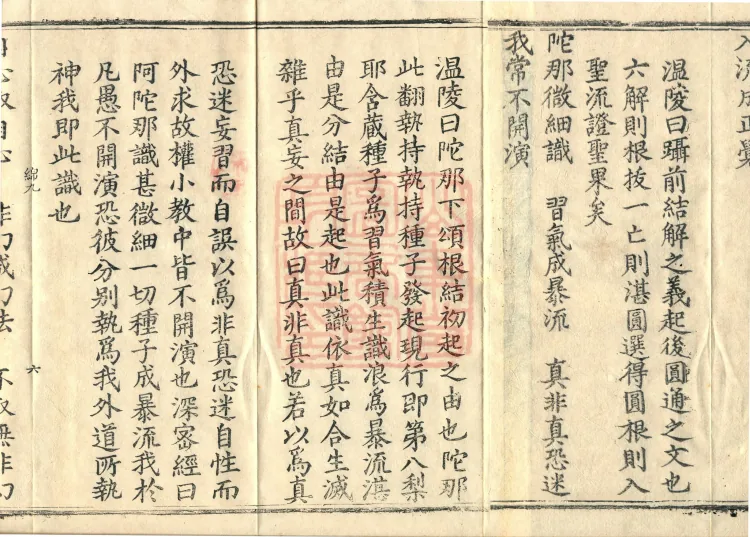 入流成正覺
温陵曰躡前結解之義起後圓通之文也
六解則根拔一亡則湛圓選得圓根則入
聖流證聖果矣
陀那微細識 習氣成暴流 真非真恐迷
我常不開演
温陵曰陀那下頌根結初起之由也陀那
此翻執持執持種子發起現行即第八梨
耶含蔵種子爲習氣積生識浪爲暴流湛
由是分結由是起也此識依真如合生滅
雜乎真妄之間故曰真非真也若以爲真
恐迷妄習而自誤以爲非真恐迷自性而
外求故權小教中皆不開演也深密經曰
阿陀那識甚微細一切種子成暴流我於
凡愚不開演恐彼分别執爲我外道所執
神我即此識也
六
自心取自心 非幻成幻法 不取無非幻